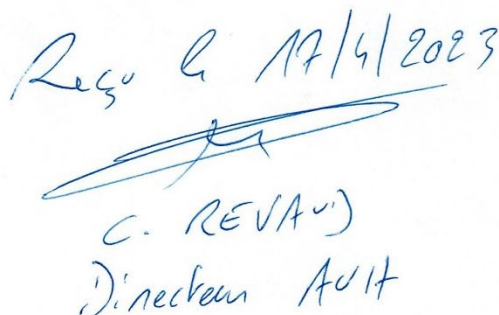 Reçu le 17/4/2023
C. REVAUD
Directeur AVIA